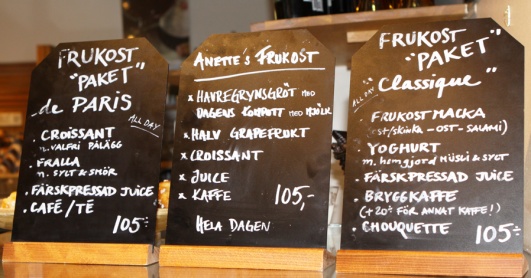 FRUKOST
"PAKET"
de PARIS
ALL DAY
. CROISSANT
m. VALFRI PÅLÄGG
. FRALLA
m. SYLT & SMÖR
. FÄRSKPRESSAD JUICE
. CAFÉ/TÉ
105:-
ANETTE'S FRUKOST
x HAVREGRYNSGRÖT MED
DAGENS KOMPOTT MED MJÖLK
x HALV GRAPEFRUKT
x CROISSANT
x JUICE
x KAFFE 105,-
HELA DAGEN
FRUKOST
"PAKET
Classique"
ALL DAY
. FRUKOST MACKA
(ost/skinka - OST - SALAMI)
. YOGHURT
m. hemgjord MÜSLI & SYLT
. FÄRSKPRESSAD JUICE
. BRYGGKAFFE
(+20:- FÖR ANNAT KAFFE!)
. CHOUQUETTE 105:-